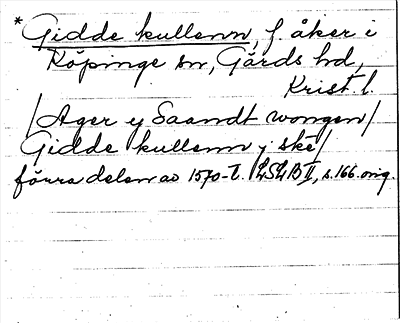 * Gidde kullenn, f. åker i
Köpinge sn, Gärds hd,
Krist. l.
/Ager y Saandt wongen/
Gidde kullenn y ske/
förra delen av 1570-t. LSLB II, s. 166. orig.